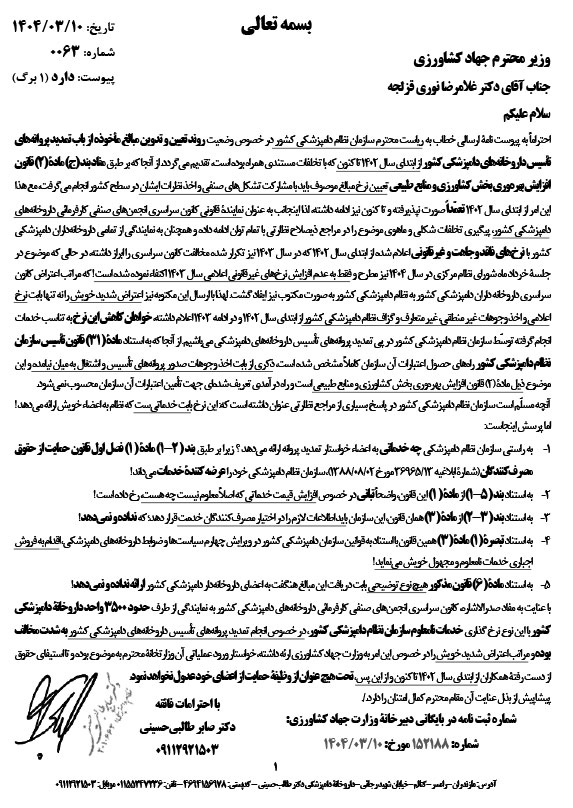 بسمه تعالی
تاریخ: ۱۴۰۴/۰۳/۱۰
شماره: ۰۰۶۳
پیوست: دارد (۱ برگ)
وزیر محترم جهاد کشاورزی
جناب آقای دکتر غلامرضا نوری قزلجه
سلام علیکم
احتراماً به پیوست نامهٔ ارسالی خطاب به ریاست محترم سازمان نظام دامپزشکی کشور در خصوص وضعیت روند تعیین و تدوین مبالغ مأخوذه از باب تمدید پروانه‌های
تأسیس داروخانه‌های دامپزشکی کشور از ابتدای سال ۱۴۰۲ تا کنون که با تخلفات مستندی همراه بوده است، تقدیم می‌گردد. از آنجا که بر طبق مفاد بند (ج) مادهٔ (۲) قانون
افزایش بهره‌وری بخش کشاورزی و منابع طبیعی تعیین نرخ مبالغ موصوف باید با مشارکت تشکل‌های صنفی و اخذ نظرات ایشان در سطح کشور انجام می‌گرفت مع هذا
این امر از ابتدای سال ۱۴۰۲ تعمداً صورت نپذیرفته و تا کنون نیز ادامه داشته، لذا اینجانب به عنوان نمایندهٔ قانونی کانون سراسری انجمن‌های صنفی کارفرمائی داروخانه‌های
دامپزشکی کشور، پیگیری تخلفات شکلی و ماهوی موضوع را در مراجع ذیصلاح نظارتی با تمام توان ادامه داده و همچنان به نمایندگی از تمامی داروخانه‌داران دامپزشکی
کشور با نرخ‌های فاقد وجاهت و غیر قانونی اعلام شده از ابتدای سال ۱۴۰۲ که در سال ۱۴۰۳ نیز تکرار شده مخالفت کانون سراسری را ابراز داشته، در حالی که موضوع در
جلسهٔ خرداد ماه شورای نظام مرکزی در سال ۱۴۰۴ نیز مطرح و فقط به عدم افزایش نرخ‌های غیر قانونی اعلامی سال ۱۴۰۳ اکتفاء نموده شده است! که مراتب اعتراض کانون
سراسری داروخانه داران دامپزشکی کشور به نظام دامپزشکی کشور به صورت مکتوب نیز ایفاد گشت. لهذا با ارسال این مکتوبه نیز اعتراض شدید خویش را نه تنها بابت نرخ
اعلامی و اخذ وجوهات غیر منطقی، غیر متعارف و گزاف نظام دامپزشکی کشور از ابتدای سال ۱۴۰۲ و در ادامه ۱۴۰۳ اعلام داشته، خواهان کاهش این نرخ به تناسب خدمات
انجام گرفته توسّط سازمان نظام دامپزشکی کشور در پی تمدید پروانه‌های تأسیس داروخانه‌های دامپزشکی می‌باشیم. از آنجا که به استناد مادهٔ (۳۱) قانون تأسیس سازمان
نظام دامپزشکی کشور راه‌های حصول اعتبارات آن سازمان کاملاً مشخص شده است، ذکری از بابت اخذ وجوهات صدور پروانه‌های تأسیس و اشتغال به میان نیامده و این
موضوع ذیل مادهٔ (۲) قانون افزایش بهره‌وری بخش کشاورزی و منابع طبیعی است و راه درآمدی تعریف شده‌ای جهت تأمین اعتبارات آن سازمان محسوب نمی‌شود.
آنچه مسلّم است سازمان نظام دامپزشکی کشور در پاسخ بسیاری از مراجع نظارتی عنوان داشته است که: این نرخ بابت خدماتی‌ست که نظام به اعضاء خویش ارائه می‌دهد!
اما پرسش اینجاست:
۱- به راستی سازمان نظام دامپزشکی چه خدماتی به اعضاء خواستار تمدید پروانه ارائه می‌دهد؟ زیرا بر طبق بند (۲-۱) مادهٔ (۱) فصل اول قانون حمایت از حقوق
مصرف‌کنندگان (شمارهٔ ابلاغیه ۳۶۹۶۵/۱۳ مورخ ۱۳۸۸/۰۸/۰۲)، سازمان نظام دامپزشکی خود را عرضه کنندهٔ خدمات می‌داند!
۲- به استناد بند (۵-۱) از مادهٔ (۱) این قانون، واضحاً تبانی در خصوص افزایش قیمت خدماتی که اصلاً معلوم نیست چه هست، رخ داده است!
۳- به استناد بند (۳-۲) از مادهٔ (۳) همان قانون، این سازمان باید اطلاعات لازم را در اختیار مصرف‌کنندگان خدمت قرار دهد؛ که نداده و نمی‌دهد!
۴- به استناد تبصرهٔ (۱) مادهٔ (۳) همین قانون با استناد به قوانین سازمان دامپزشکی کشور در ویرایش چهارم سیاست‌ها و ضوابط داروخانه‌های دامپزشکی، اقدام به فروش
اجباری خدمات نامعلوم و مجهول خویش می‌نماید!
۵- به استناد مادهٔ (۶) قانون مذکور هیچ نوع توضیحی بابت دریافت این مبالغ هنگفت به اعضای داروخانه‌دار دامپزشکی کشور ارائه نداده و نمی‌دهد!
با عنایت به مفاد صدرالاشاره، کانون سراسری انجمن‌های صنفی کارفرمائی داروخانه‌های دامپزشکی کشور به نمایندگی از طرف حدود ۳۵۰۰ واحد داروخانهٔ دامپزشکی
کشور با این نوع نرخ گذاری خدمات نامعلوم سازمان نظام دامپزشکی کشور، در خصوص انجام تمدید پروانه‌های تأسیس داروخانه‌های دامپزشکی کشور به شدت مخالف
بوده و مراتب اعتراض شدید خویش را در خصوص این امر به وزارت جهاد کشاورزی ارئه داشته، خواستار ورود عملیاتی آن وزارتخانهٔ محترم به موضوع بوده و تا استیفای حقوق
از دست رفتهٔ همکاران از ابتدای سال ۱۴۰۲ تا کنون و از این پس، تحت هیچ عنوان از وظیفهٔ حمایت از اعضای خود عدول نخواهد نمود.
پیشاپیش از بذل عنایت آن مقام محترم کمال امتنان را دارد./
با احترامات فائقه
دکتر صابر طالبی‌حسینی
۰۹۱۱۲۹۲۱۵۰۳
شماره ثبت نامه در بایگانی دبیرخانهٔ وزارت جهاد کشاورزی:
شماره: ۱۵۲۱۸۸ مورخ: ۱۴۰۴/۰۳/۱۰
۱
آدرس: مازندران - رامسر - کتالم - خیابان شهید رجائی - داروخانهٔ دامپزشکی دکتر طالب حسینی - کدپستی: ۴۶۹۴۱۵۶۱۷۸ - تلفن: ۰۱۱۵۵۲۴۷۲۳۶ موبایل: ۰۹۱۱۲۹۲۱۵۰۳